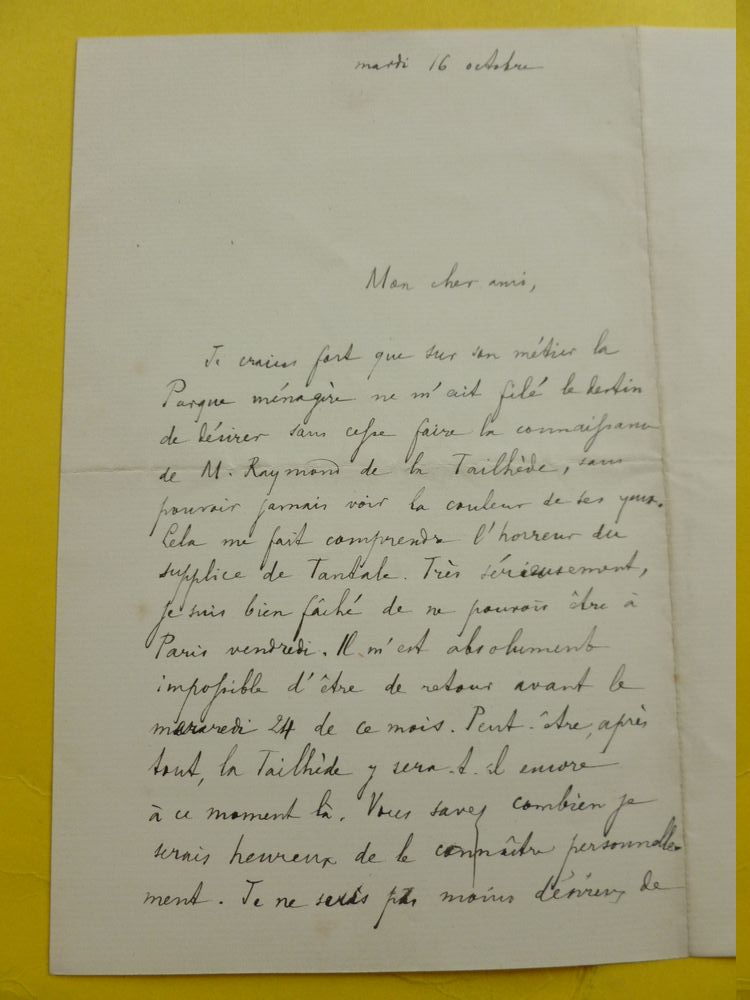 mardi 16 octobre
Mon cher ami,
Je crains fort que sur son métier la
Parque ménagère ne m'ait filé le destin
de désirer sans cesse faire la connaissance
de M. Raymond de la Tailhède, sans
pouvoir jamais voir la couleur de ses yeux.
Cela me fait comprendre l'horreur du
supplice de Tantale. Très sérieusement,
je suis bien fâché de ne pouvoir être à
Paris vendredi. Il m'est absolument
impossible d'être de retour avant le
mercredi 24 de ce mois. Peut-être, après
tout, la Tailhède y sera-t-il encore
à ce moment là. Vous savez combien je
serais heureux de le connaître personnelle-
ment. Je ne serais pas moins désireux de